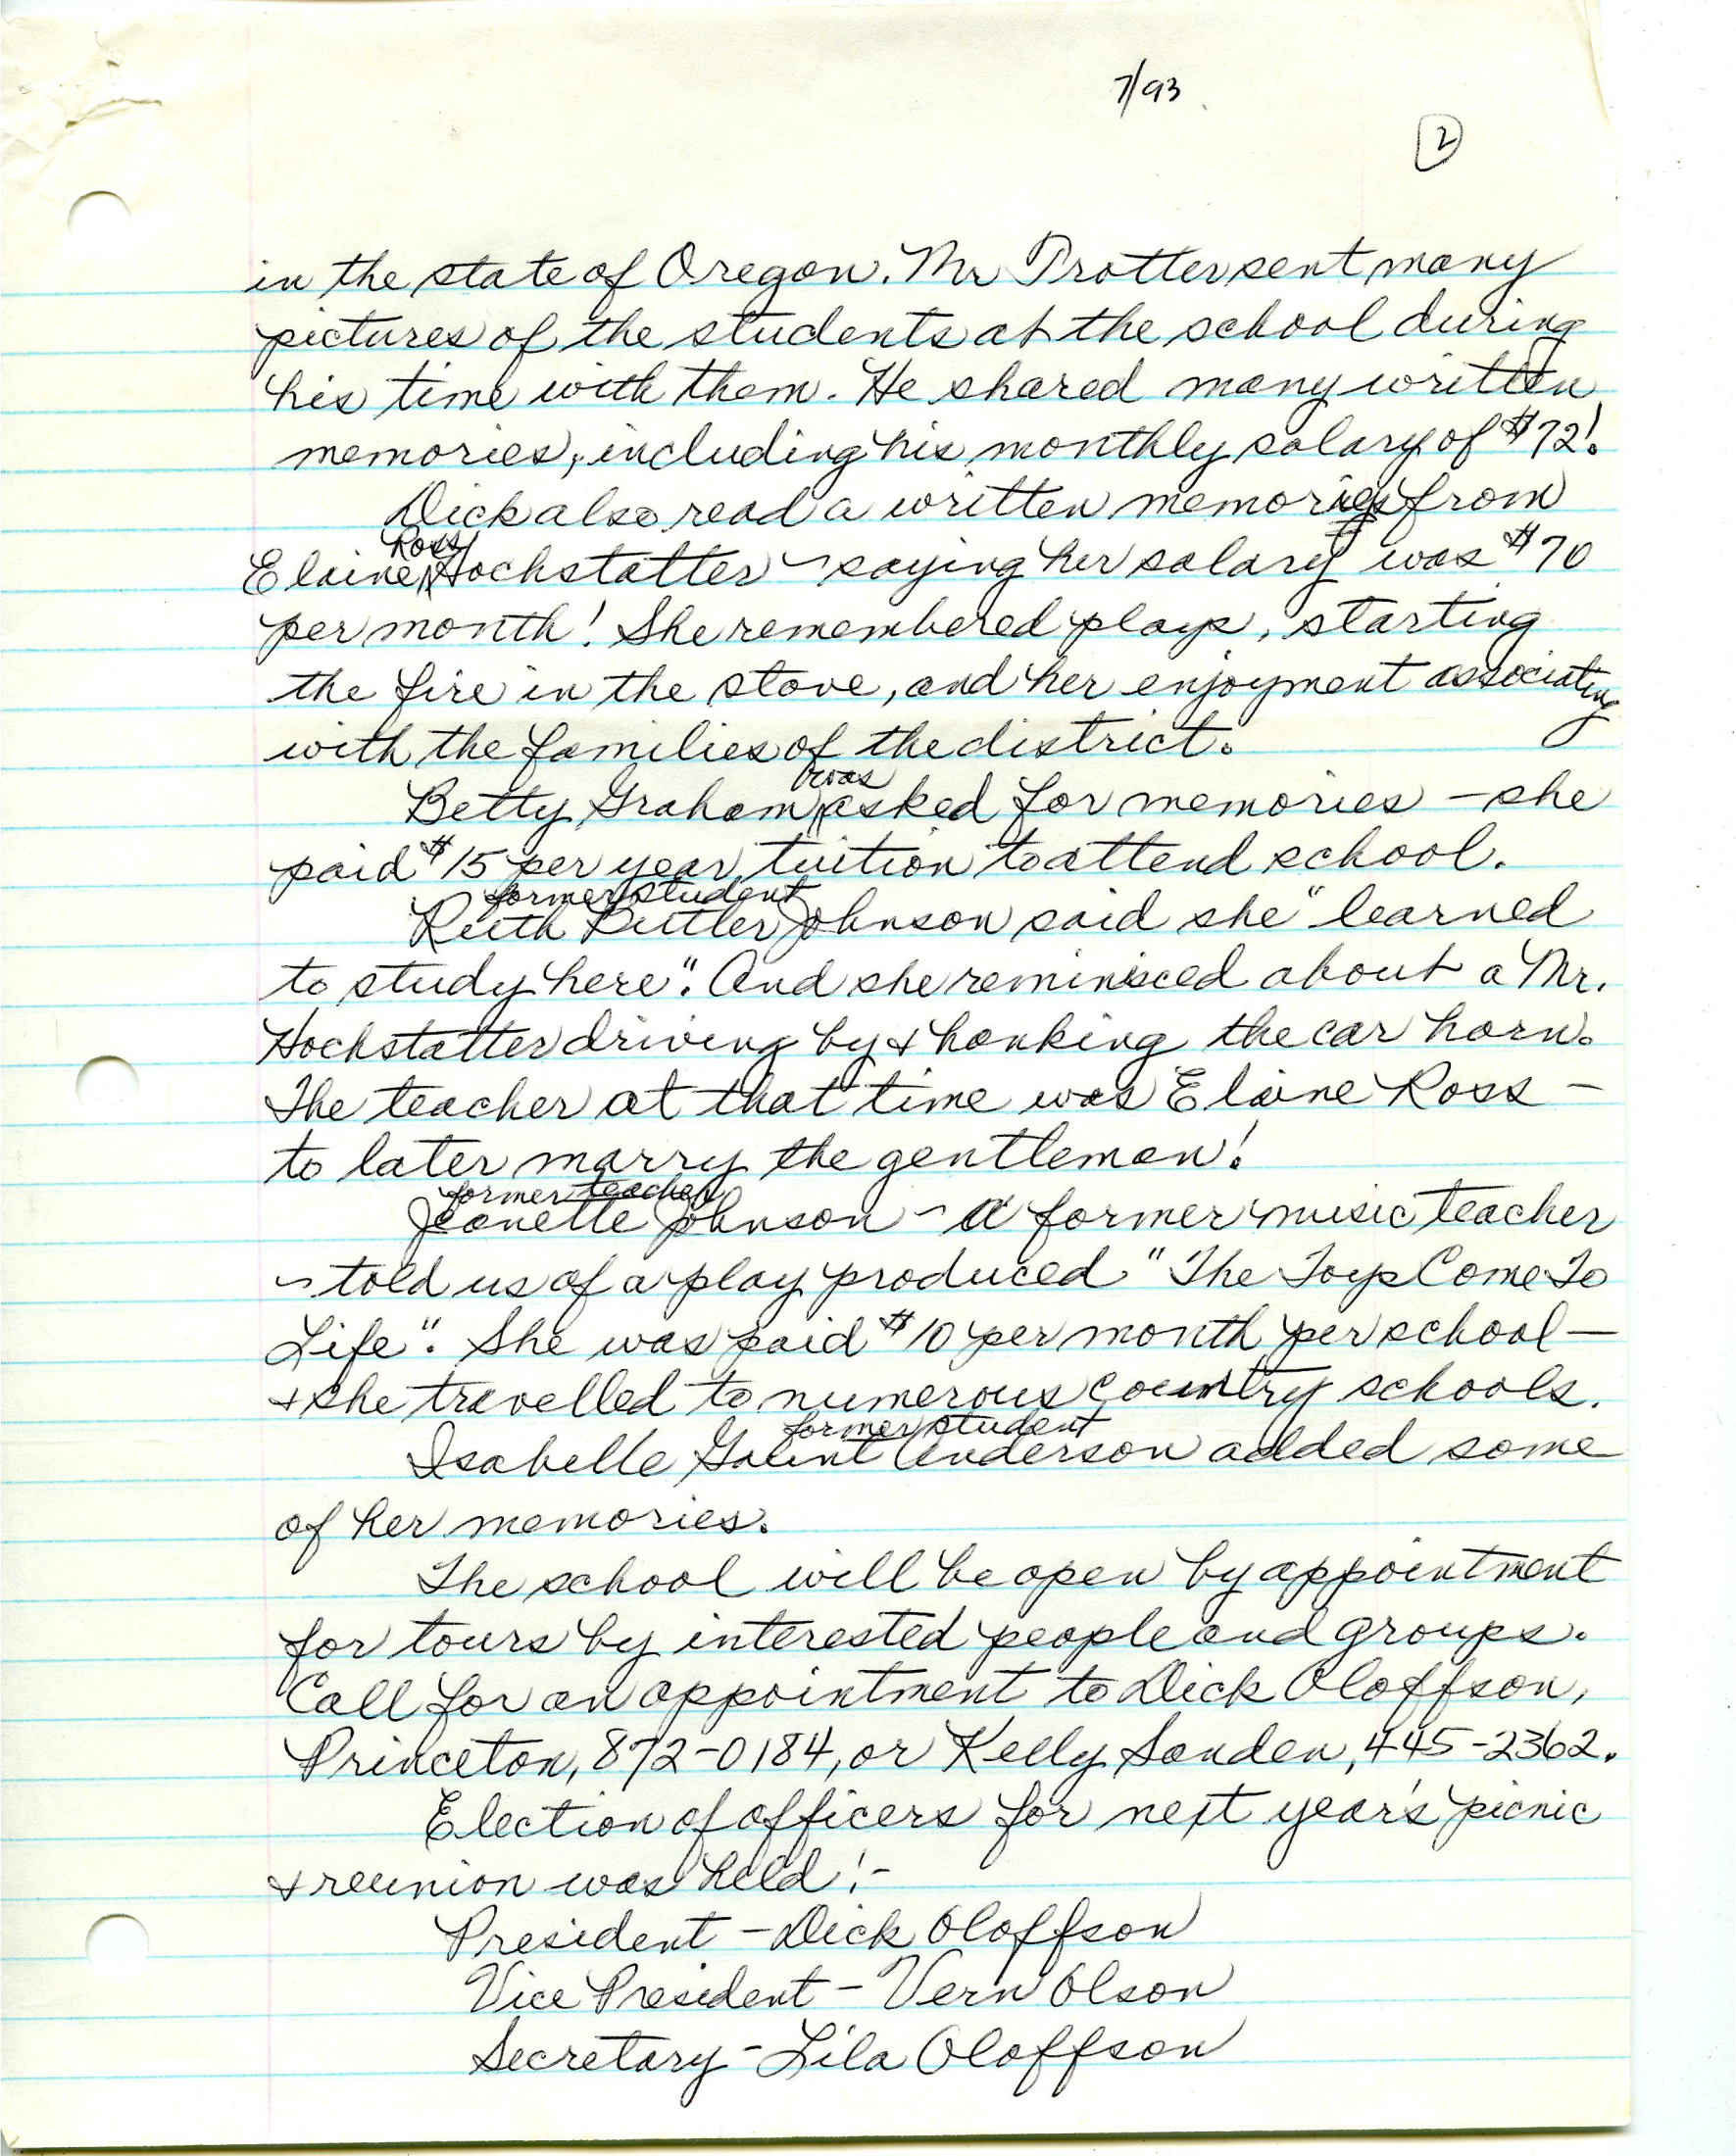 7/93
2
in the state of Oregon. Mr Trotter sent many
pictures of the students at the school during
his time with them. He shared many written
memories, including his monthly salary of $72!
Dick also read a written memories from
Ross
Elaine Hochstatter - saying her salary was $70
per month! She remembered plays, starting
the fire in the stove, and her enjoyment associating
with the families of the district.
was
Betty Graham asked for memories - she
paid $15 per year tuition to attend school.
former student
Ruth Johnson said she "learned
to study here". And she reminisced about a Mr.
Hochstatter driving by & honking the car horn.
The teacher at that time was Elaine Ross -
to later marry the gentleman!
former teacher
Jeanette Johnson - a former music teacher
- told us of a play produced "The Toys Come To
Life". She was paid $10 per month per school -
& she travelled to numerous country schools.
former student
Isabelle Anderson added some
of her memories.
The school will be open by appointment
for tours by interested people and groups.
Call for an appointment to Dick Oloffson,
Princeton, 872-0184, or Kelly Sanden, 445-2362.
Election of officers for next year's picnic
& reunion was held:-
President - Dick Oloffson
Vice President - Vern Olson
Secretary - Lila Oloffson